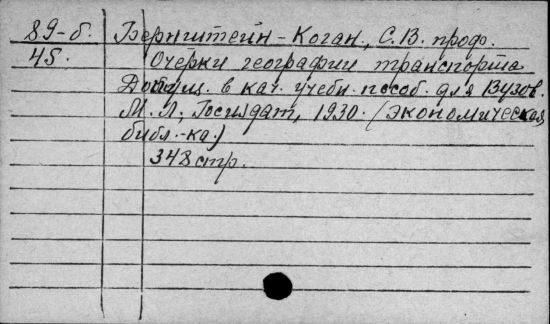 89-б. Бернштейн-Коган, С.В. проф.
45. Очерки географии транспорта
Допущ. в кач. учебн. пособ. для Вузов.
М. Л., Госиздат, 1930. (Экономическая
библ.-ка.)
348 стр.